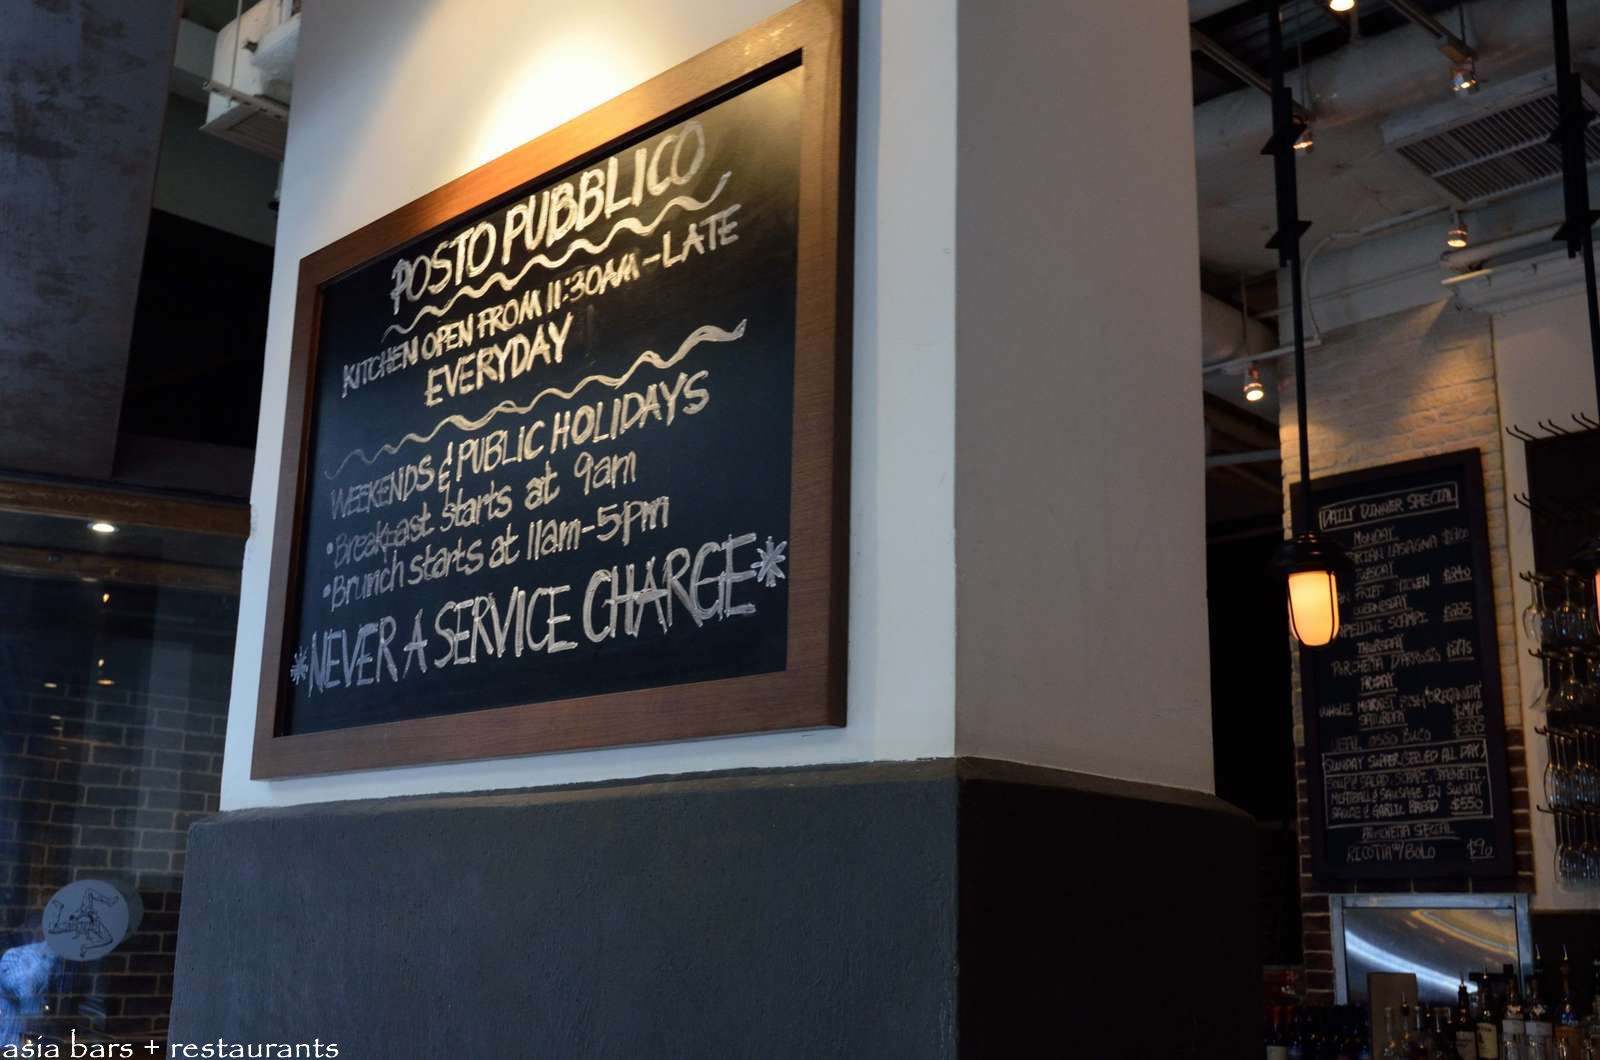 POSTO PUBBLICO
KITCHEN OPEN FROM 11:30AM - LATE
EVERYDAY
WEEKENDS & PUBLIC HOLIDAYS
• Breakfast starts at 9am
• Brunch starts at 11am-5pm
*NEVER A SERVICE CHARGE*
DAILY DINNER SPECIAL
MONDAY
LASAGNA
TUESDAY
$240
WEDNESDAY
SCAMPI
THURSDAY
PORCHETTA
FRIDAY
WHOLE MARKET FISH "OREGANATA"
SATURDAY
VEAL OSSO BUCO
SUNDAY SUPPER (SERVED ALL DAY)
MEATBALL & SAUSAGE IN SUNDAY
SAUCE & GARLIC BREAD $550
SPECIAL
asia bars + restaurants